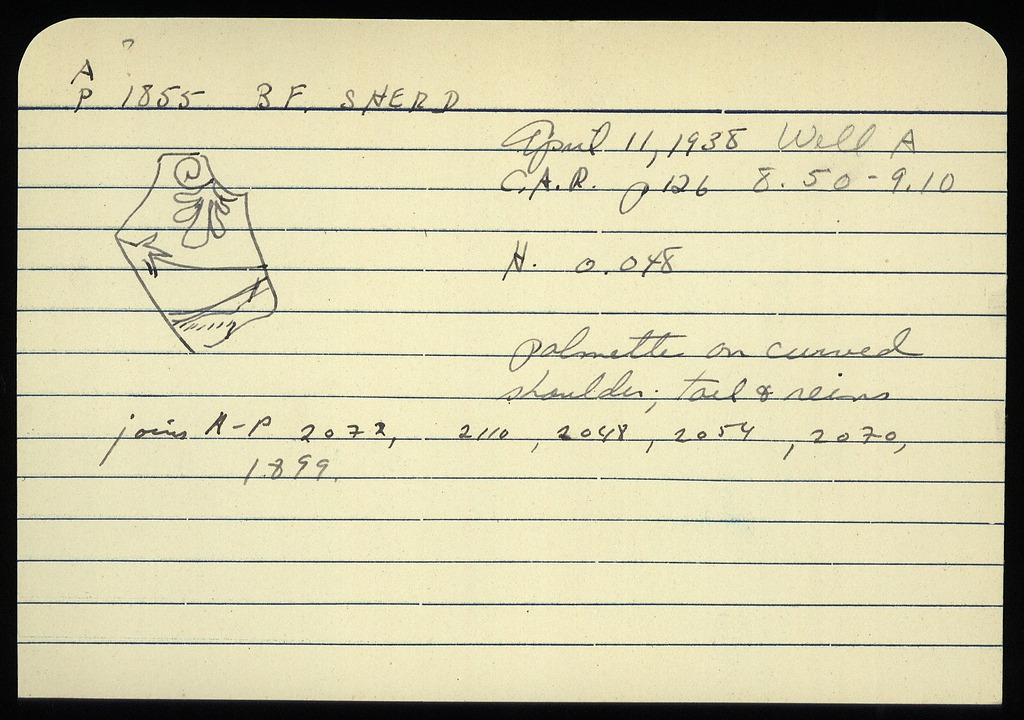 A
P 1855 BF. SHERD
April 11, 1938 Well A
C.A.R. p 126 8.50-9.10
H. 0.048
palmette on curved
shoulder; tail & reins
joins A-P 2072, 2110, 2048, 2054, 2070,
1899.